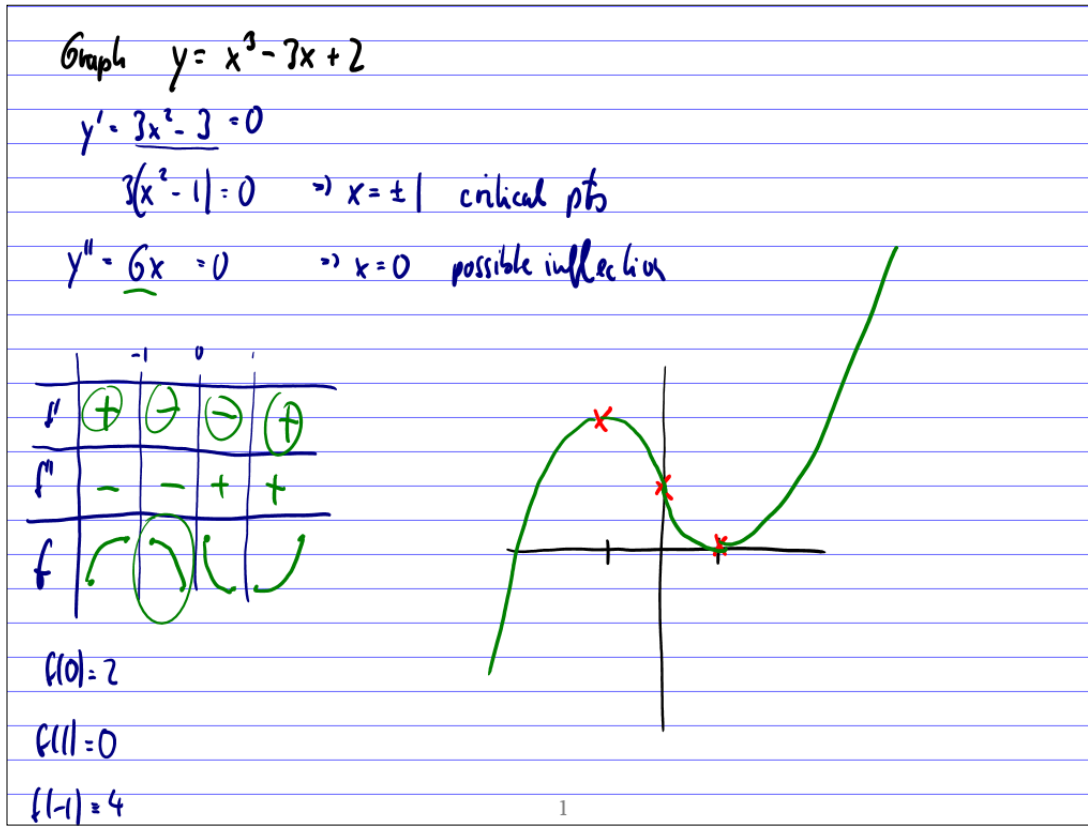 Graph y = x³ - 3x + 2
y' = 3x² - 3 = 0
3(x² - 1) = 0 => x = ± 1 critical pts
y'' = 6x = 0 => x = 0 possible inflection
-1 0 1
f' + - - +
f'' - - + +
f
f(0) = 2
f(1) = 0
f(-1) = 4
1